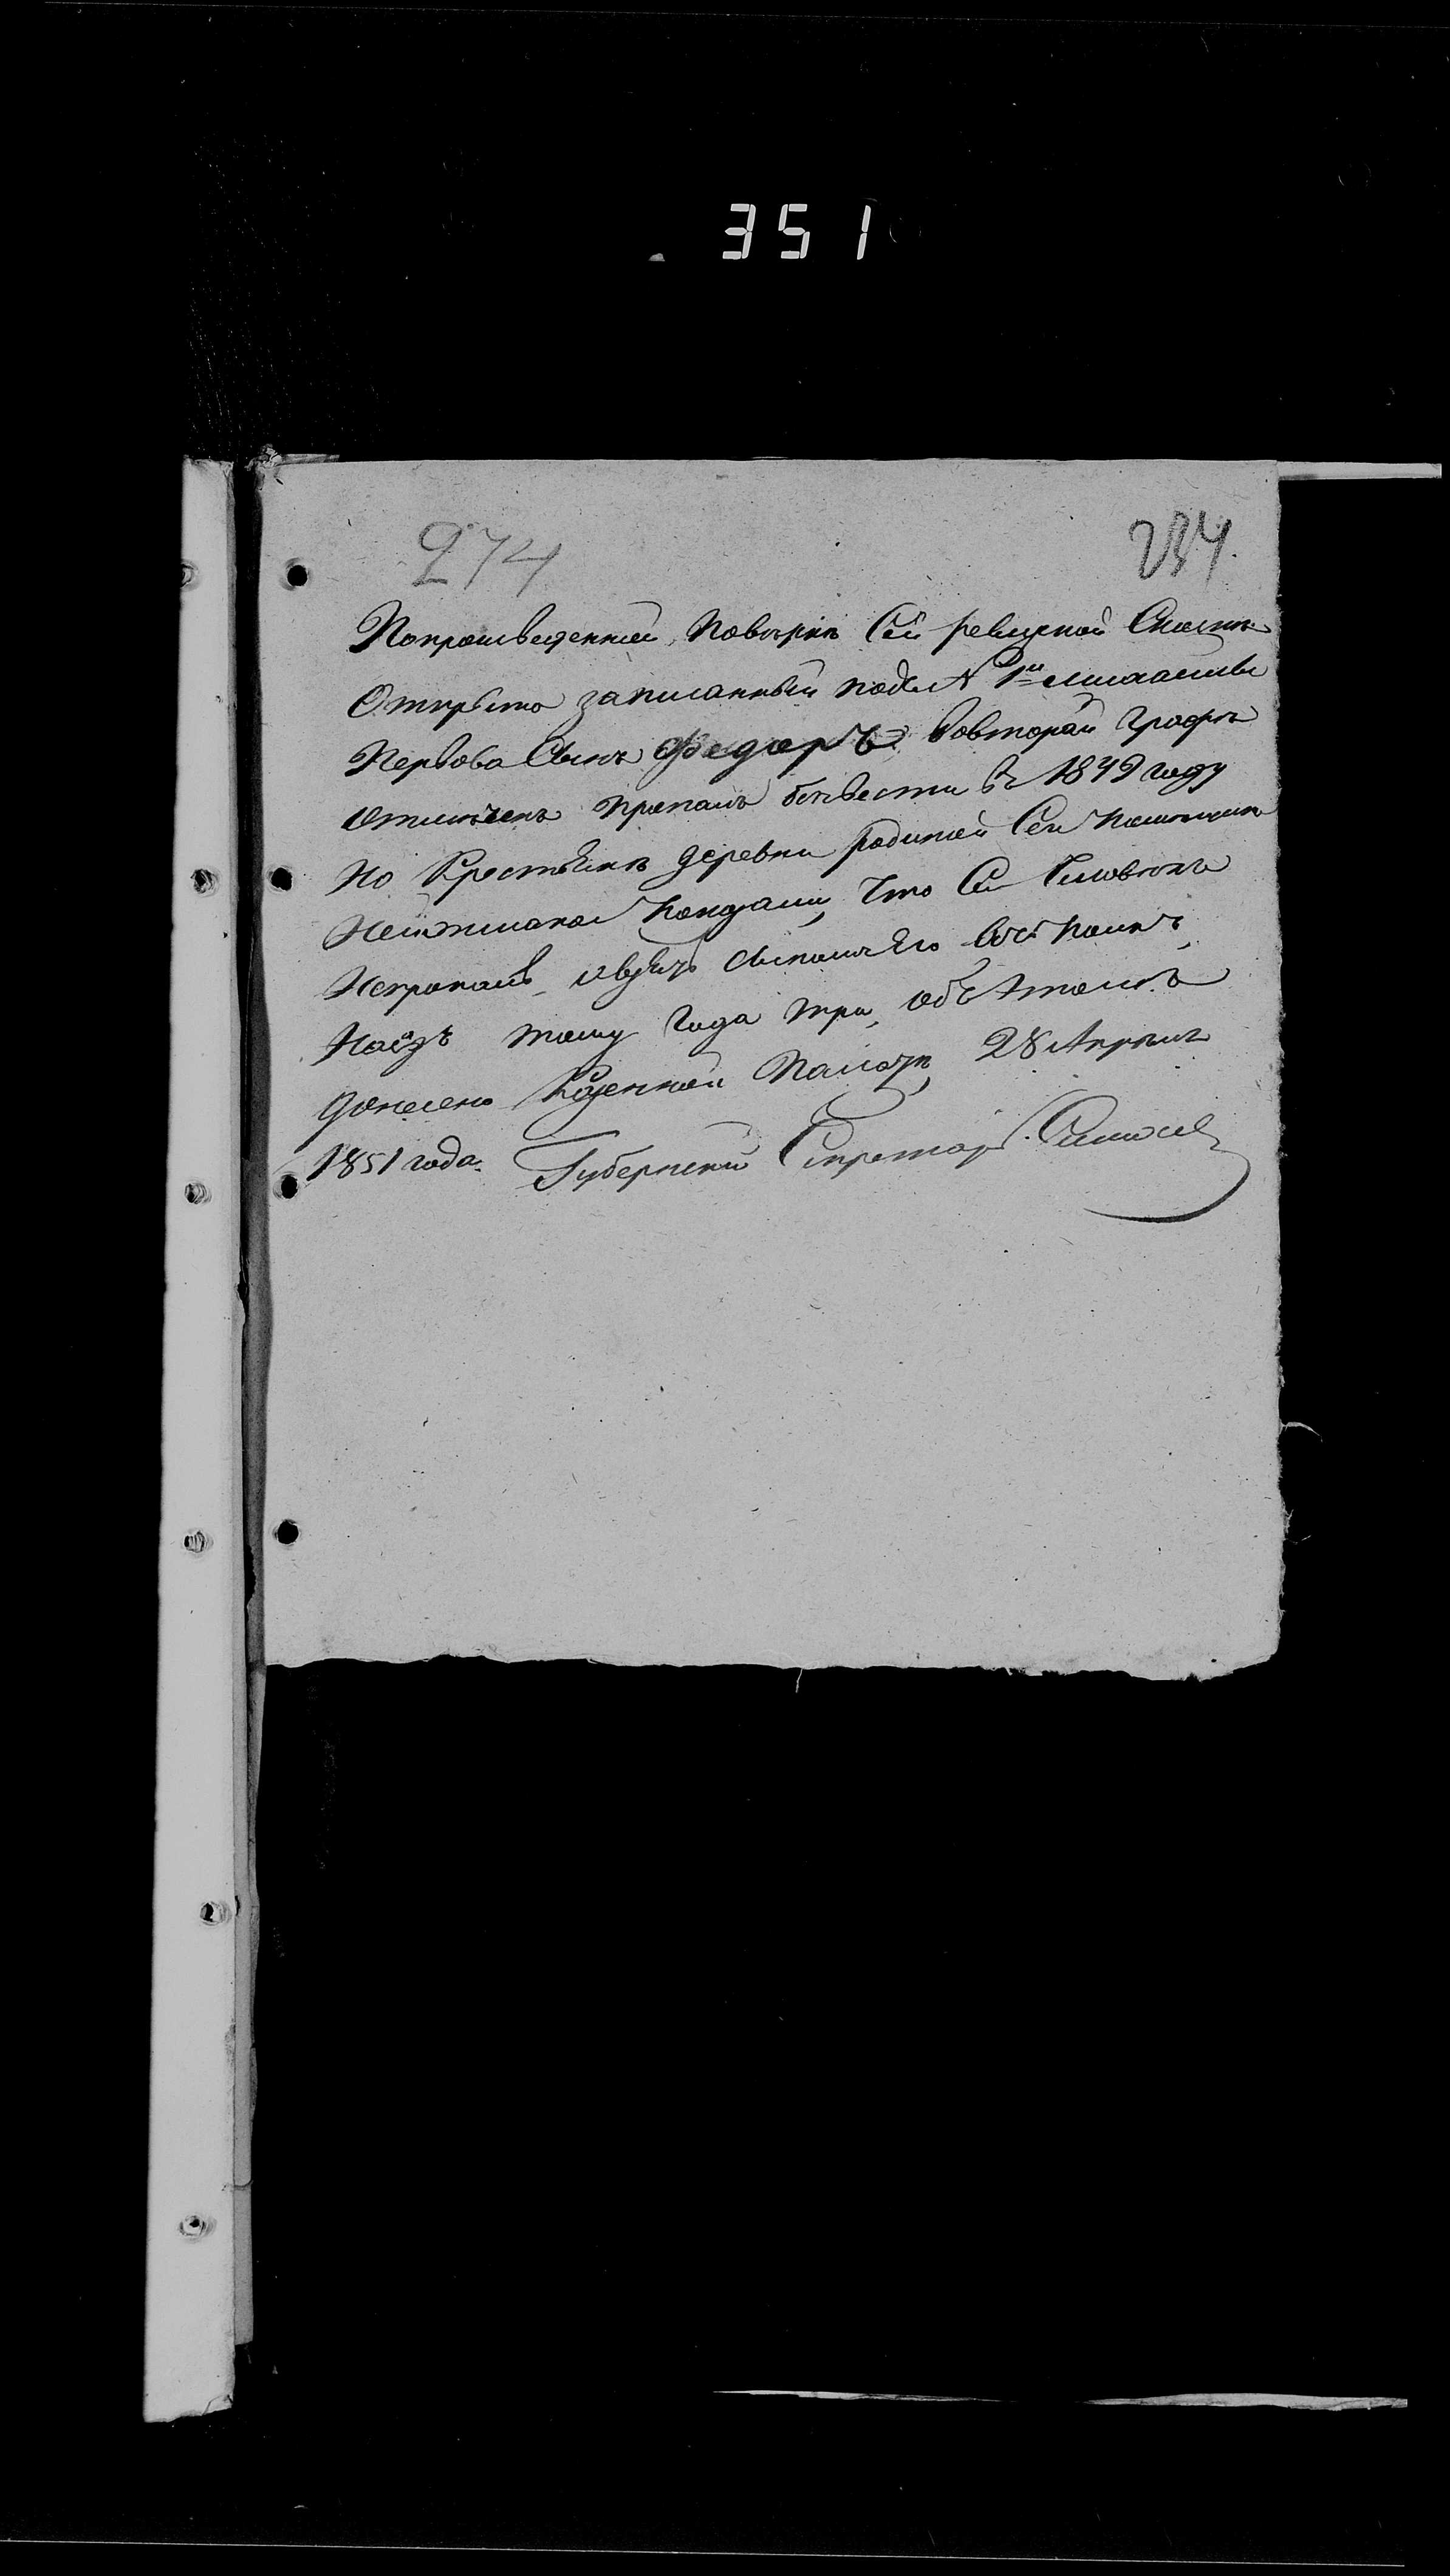 351
274
234.
Попроизведенной поверки Сей ревизкой Скаски
Открыто записанный под № 1м
Первова Сынъ Федоръ вовторой графе
отмеченъ пропалъ безвести въ 1849 году
Но Крестьяне деревни
показали, что Сей Человекъ
Непропалъ,
назадъ тому года три, объ томъ
донесено Казенной Палате, 28 Апреля
1851 года. Губернский Секретарь